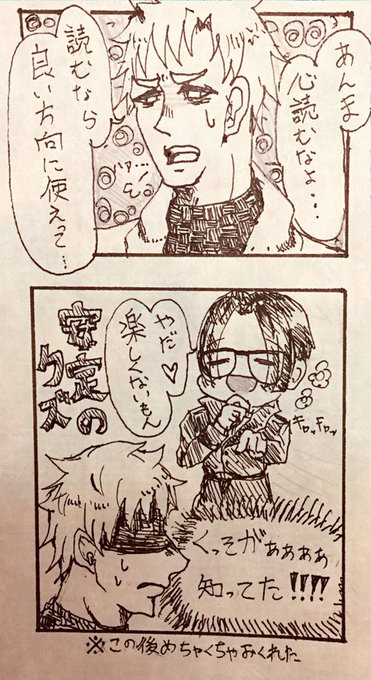 あんま
心読むなよ・・
読むなら
良い方向に使えって…
ハァ…
やだ♡
楽しくないもん
安定の
クズ
キャッキャッ
くっそがぁぁぁぁ
知ってた!!!!
※この後めちゃくちゃおくれた